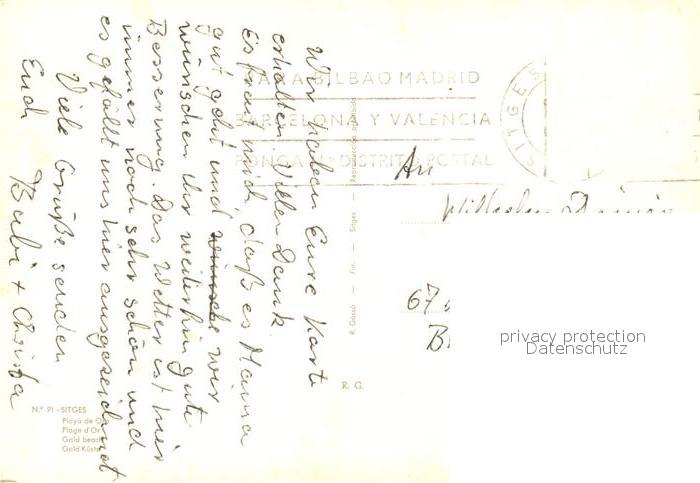 Wir haben Eure Karte
erhalten. Vielen Dank.
Es freut mich, daß es Mama
gut geht und wünsche wir
wünschen ihr weiterhin gute
Besserung. Das Wetter ist hier
immer noch sehr schön und
es gefällt uns hier ausgezeichnet
Viele Grüße senden
Euch Babi + Christa
BILBAO MADRID
BARCELONA Y VALENCIA
PONGA DISTRITO POSTAL
SITGES
An
Wilhelm
67
B
R. Gassó - Fot. - Sitges - Reproducción prohibida
R. G.
N.º 91 - SITGES
Playa de O
Plage d'Or
Gold beach
Gold Küste
privacy protection
Datenschutz